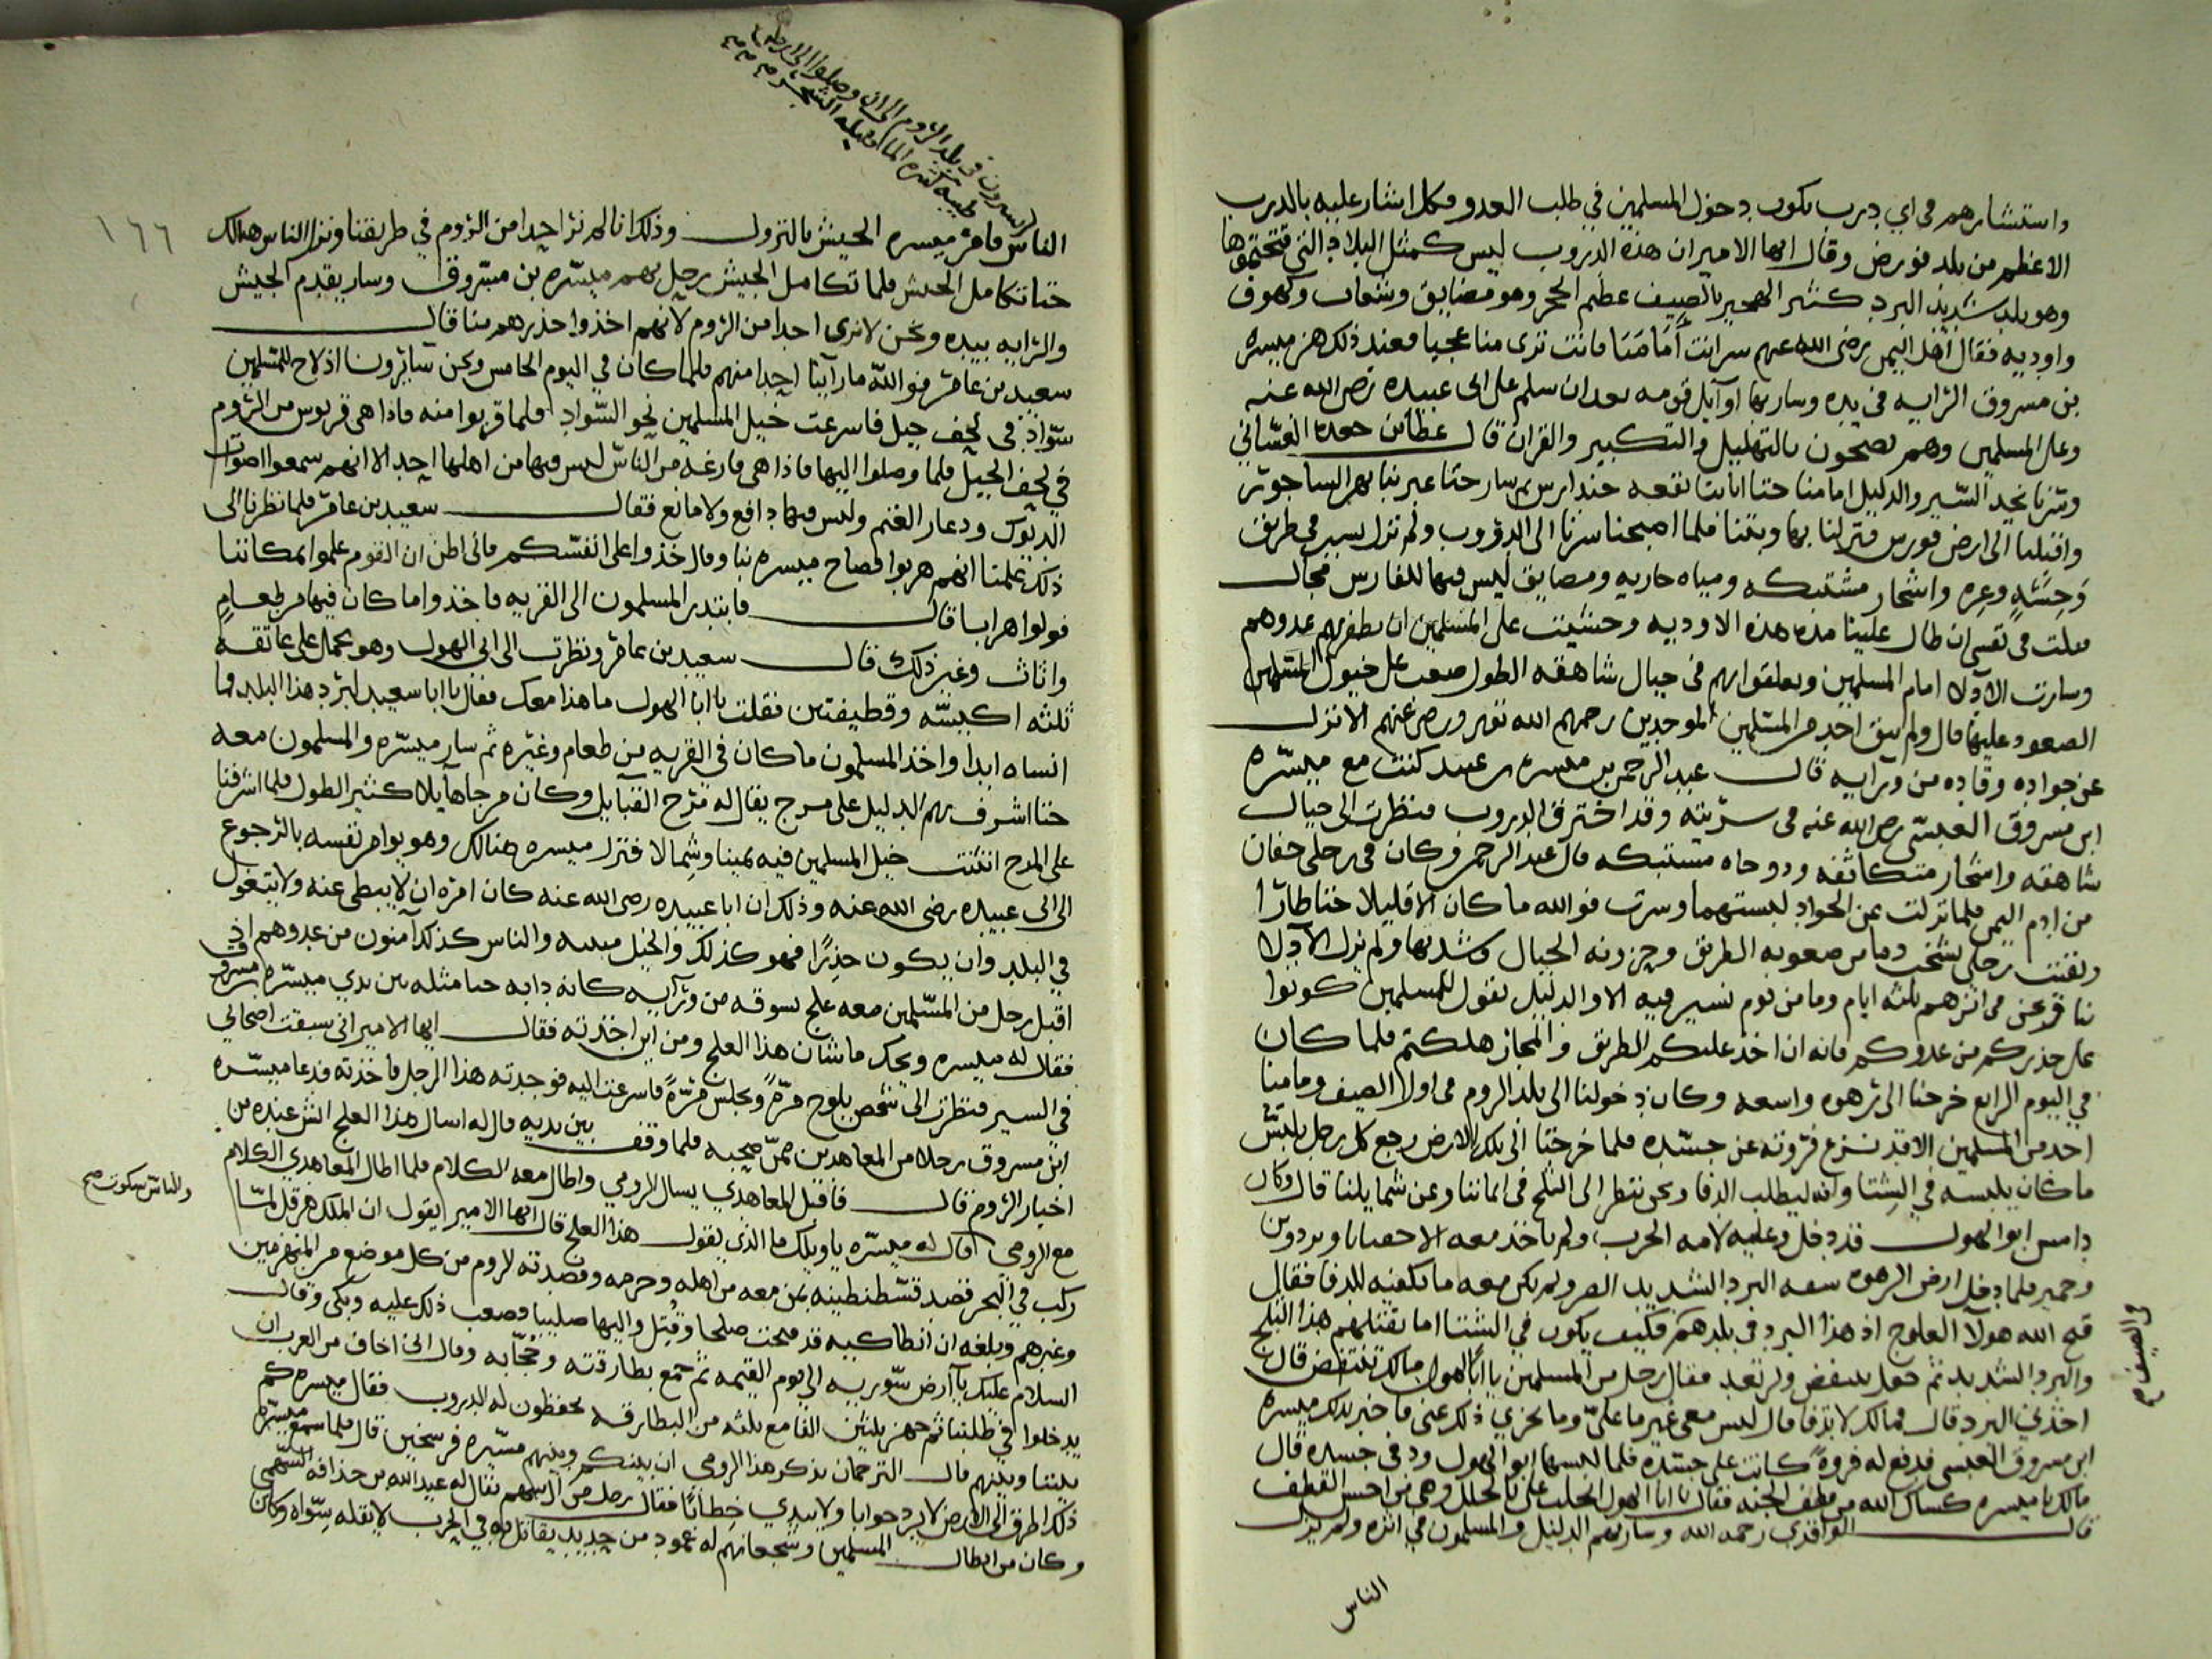 واستشارهم في اي درب يكون دخول المسلمين في طلب العدو وكل اشار عليه بالدرب
الاعظم من بلد قورص وقال ايها الامير ان هذه الدروب ليس كمثل البلاد التي فتحتموها
وهو بلد شديد البرد كثير الهجير بالصيف عظيم الحجر وهو مضايق وشعاب وكهوف
واوديه فقال اهل اليمن رضى الله عنهم سر انت أمامنا فانت ترى منا عجبا فعند ذلك هز ميسره
بن مسروق الرايه في يده وسار بها اوايل قومه بعد ان سلم على ابى عبيده رضى الله عنه
وعلى المسلمين وهم يضجون بالتهليل والتكبير والقران قال عطاف بن جعده الغساني
وسرنا نجد السير والدليل امامنا حتا اتانا بقعه جندارس ثم سار حتا عبر بنا نهر الساجور
واقبلنا الى ارض قورس فنزلنا بها وبتنا فلما اصبحنا سرنا الى الدروب ولم نزل نسير في طريق
وحشه وعره واشجار مشتبكه ومياه جاريه ومضايق ليس فيها للفارس مجال
فقلت في نفسي ان طال علينا مده هذه الاوديه وخشيت على المسلمين ان يظفر بهم عدوهم
وسارت الادلا امام المسلمين وتعلقوا بهم في جبال شاهقه الطول صعب على خيول المسلمين
الصعود عليها قال ولم يبق احد من المسلمين الموجدين رحمهم الله ورضى عنهم الا نزل
عن جواده وقاده من ورايه قال عبد الرحمن بن ميسره كنت مع ميسره
ابن مسروق العبسي رضى الله عنه في سريته وقد اخترق الدروب فنظرت الى جبال
شاهقه واشجار متكاثفه ودوحاه مشتبكه قال عبد الرحمن وكان في رجلى خفان
من ادم اليمن فلما نزلت عن الجواد لبستهما وسرت فوالله ما كان الا قليلا حتا طارا
وبقيت رجلى تشخب دما من صعوبه الطريق وحزونه الجبال وشدتها ولم تزل الادلا
بنا ونحن في اثرهم ثلثه ايام وما من يوم نسير فيه الا والدليل يقول للمسلمين كونوا
على حذركم من عدوكم فانه ان اخذ عليكم الطريق والمجاز هلكتم فلما كان
في اليوم الرابع خرجنا الى رهوه واسعه وكان دخولنا الى بلد الروم في اول الصيف وما منا
احد من المسلمين الا قد نزع فروته عن جسده فلما خرجنا الى تلك الارض رجع كل رجل يلبس
ما كان يلبسه في الشتا وانه ليطلب الدفا ونحن ننظر الى الثلج في ايماننا وعن شمايلنا قال وكان
دامس ابو الهول قد دخل وعليه لامه الحرب ولم ياخذ معه الا وبردين
وحمير فلما دخل ارض الرهوه لسعه البرد الشديد ولم يكن معه ما يكفيه للدفا فقال
قبح الله هولآ العلوج اذ هذا البرد في بلدهم فكيف يكون في الشتا اما يقتلهم هذا الثلج
والبرد الشديد ثم جعل ينتفض ولرتعد فقال رجل من المسلمين يا ابا الهول ما لك تنتفض قال
اخذني البرد قال فما لك لا تدفا قال ليس معى غير ما علىّ وما يجزي ذلك عنى فاخبر بذلك ميسره
ابن مسروق العبسى فدفع له فروةً كانت على جسده فلما لبسها ابو الهول ودفى جسده قال
مالك يا ميسره كساك الله من قطف الجنه فقال يا ابا الهول ابخلت على بالحلل وهى من احسن القطف
قال الواقدي رحمه الله وسار بهم الدليل والمسلمون في اثره ولم يزل
الناس
في الصيف صح
يسيرون في بلد الروم الى ان وصلوا الى ارض
طيبه كثيره الماء قليله الشجر
١٦٦
الناس فامر ميسره الجيش بالنزول وذلك انا لم نر احدا من الروم في طريقنا ونزل الناس هنالك
حتا تكامل الجيش فلما تكامل الجيش رحل بهم ميسره بن مسروق وسار يقدم الجيش
والرايه بيده ونحن لا نرى احدا من الروم لانهم اخذوا حذرهم منا قال
سعيد بن عامر فوالله ما راينا احدا منهم فلما كان في اليوم الخامس ونحن سايرون اذ لاح للمسلمين
سواد في لحف جبل فاسرعت خيل المسلمين نحو السواد فلما قربوا منه فاذا هى قريه من الروم
في لحف الجبل فلما وصلوا اليها فاذا هى فارغه من الناس ليس فيها من اهلها احد الا انهم سمعوا اصوات
الديوك ودعار الغنم وليس فيها دافع ولا مانع فقال سعيد بن عامر فلما نظرنا الى
ذلك علمنا انهم هربوا فصاح ميسره بنا وقال خذوا على انفسكم فانى اظن ان القوم علموا بمكاننا
فولوا هرابا قال فابتدر المسلمون الى القريه فاخذوا ما كان فيها من طعام
واثاث وغير ذلك قال سعيد بن عامر ونظرت الى ابي الهول وهو يحمل على عاتقه
ثلثه اكبسّه وقطيفتين فقلت يا ابا الهول ما هذا معك فقال يا ابا سعيد لبرد هذا البلد فما
انساه ابدا واخذ المسلمون ما كان في القريه من طعام وغيره ثم سار ميسره والمسلمون معه
حتا اشرف بهم الدليل على مرج يقال له مرج القبايل وكان مرجا هايلا كثير الطول فلما اشرفنا
على المرج انبثت خيل المسلمين فيه يمينا وشمالا فنزل ميسره هنالك وهو يوامر نفسه بالرجوع
الى ابى عبيده رضى الله عنه وذلك ان ابا عبيده رضى الله عنه كان امره ان لا يبطى عنه ولا يتوغل
في البلد وان يكون حذرًا فهو كذلك والخيل والناس كذلك آمنون من عدوهم اذ
اقبل رجل من المسلمين معه علج يسوقه من ورآيه كانه دابه حتا مثله بين يدي ميسره بن مسروق
فقال له ميسره ويحك ما شان هذا العلج ومن اين اخذته فقال ايها الامير انى سبقت اصحابي
في السير فنظرت الى شخص يلوح مرّةً ويجلس مرّةً فاسرعت اليه فوجدته هذا الرجل فاخذته فدعا ميسره
ابن مسروق رجلا من المعاهدين ممّن صحبه فلما وقف بين يديه قال له اسال هذا العلج ايش عنده من
اخبار الروم قال فاقبل المعاهدي يسال الرومي واطال معه الكلام فلما اطال المعاهدي الكلام
والناس سكوت صح
مع الرومى قال له ميسره يا ويلك ما الذي يقول هذا العلج قال ايها الامير يقول ان الملك هرقل لمّا
ركب في البحر قصد قسطنطينه بمن معه من اهله وحرمه وقصدته الروم من كل موضع من المنهزمين
وغيرهم وبلغه ان انطاكيه قد فتحت صلحا وقُتل واليها صليبا فصعب ذلك عليه وبكى وقال
السلام عليك يآ ارض سّوريه الى يوم القيمه ثم جمع بطارقته وحجّابه وقال انى اخاف من العرب ان
يدخلوا في طلبنا ثم جهز ثلثين الفا مع ثلثه من البطارقه يحفظون له الدروب فقال ميسره كم
بيننا وبينهم قال الترجمان يذكر هذا الرومى ان بينكم وبينهم مسيره فرسخين قال فلما سمع ميسره
ذلك اطرق الى الارض لا يرد جوابا ولا يبدي خطابًا فقال رجل من آل سهم يقال له عبد الله بن حذافه السهمى
وكان من ابطال المسلمين وشجعانهم له عمود من حديد يقاتل به في الحرب لا يقله سواه وكان